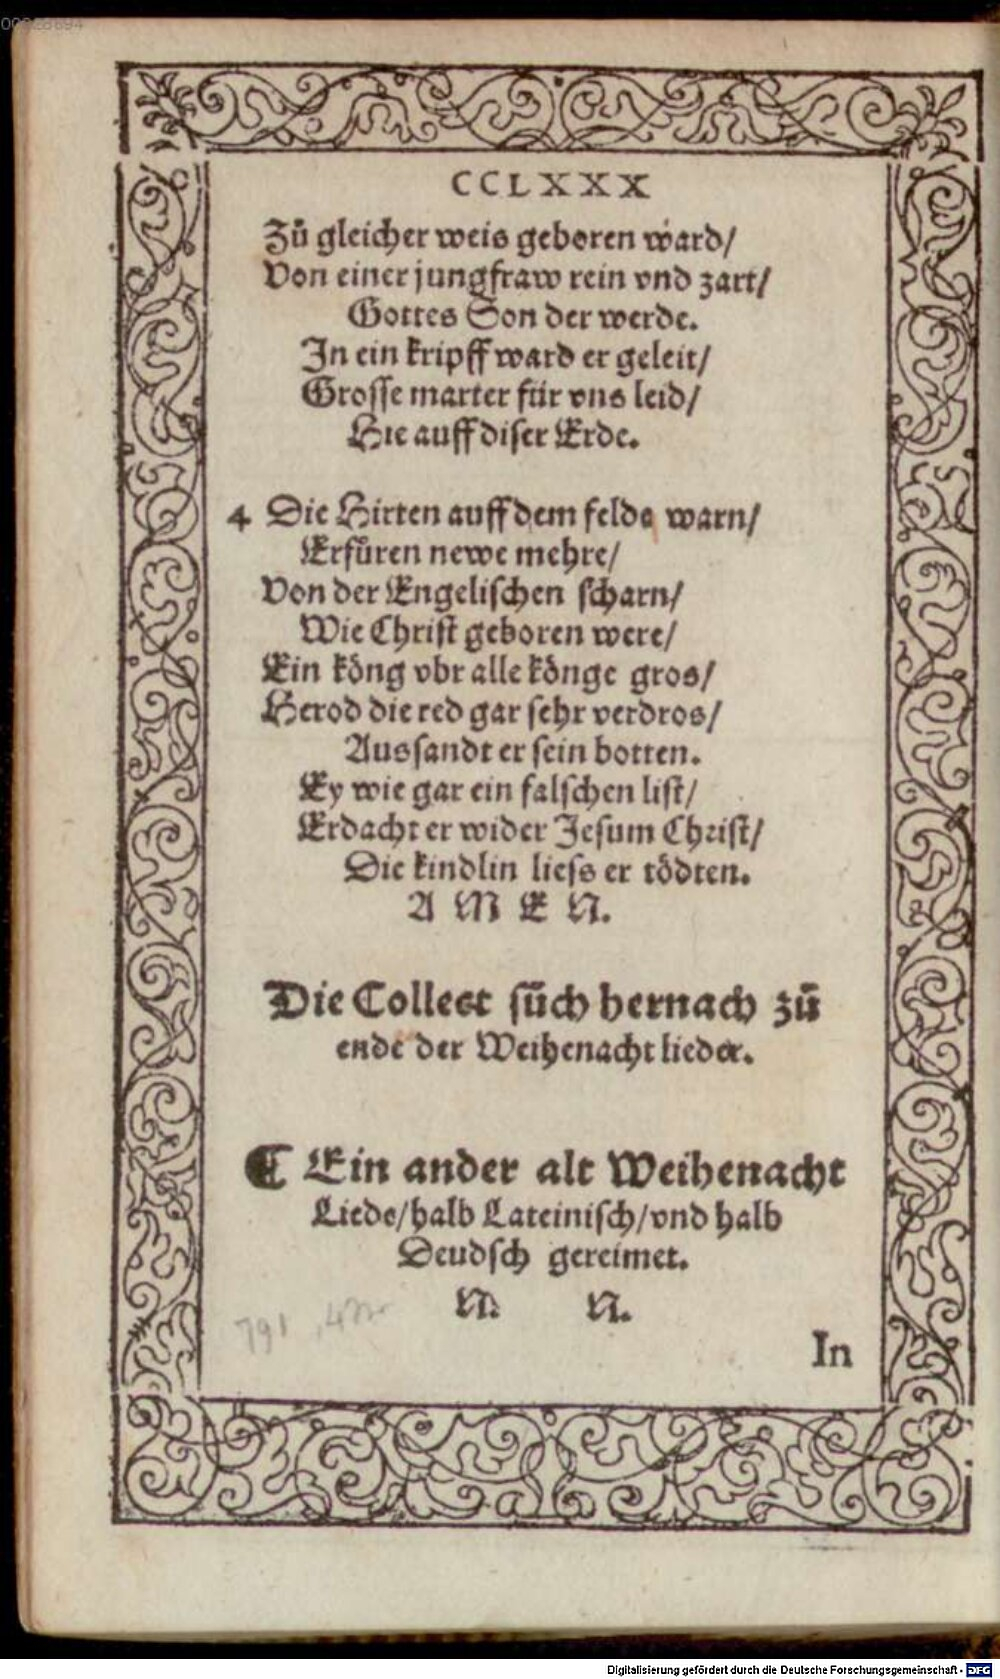 00028694
CCLXXX
Zů gleicher weis geboren ward/
Von einer jungfraw rein vnd zart/
Gottes Son der werde.
In ein kripff ward er geleit/
Grosse marter für vns leid/
Hie auff diser Erde.
4 Die Hirten auff dem felde warn/
Erfůren newe mehre/
Von der Engelischen scharn/
Wie Christ geboren were/
Ein köng vbr alle könge gros/
Herod die red gar sehr verdros/
Aussandt er sein botten.
Ey wie gar ein falschen list/
Erdacht er wider Jesum Christ/
Die kindlin liess er tödten.
A M E N.
Die Collect sůch hernach zů
ende der Weihenacht lieder.
¶ Ein ander alt Weihenacht
Liede/halb Lateinisch/vnd halb
Deudsch gereimet.
N. N.
791
In
Digitalisierung gefördert durch die Deutsche Forschungsgemeinschaft - DFG